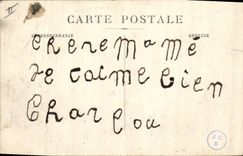 CARTE POSTALE
CORRESPONDANCE
ADRESSE
chere mamé
Je taime bien
Charlou